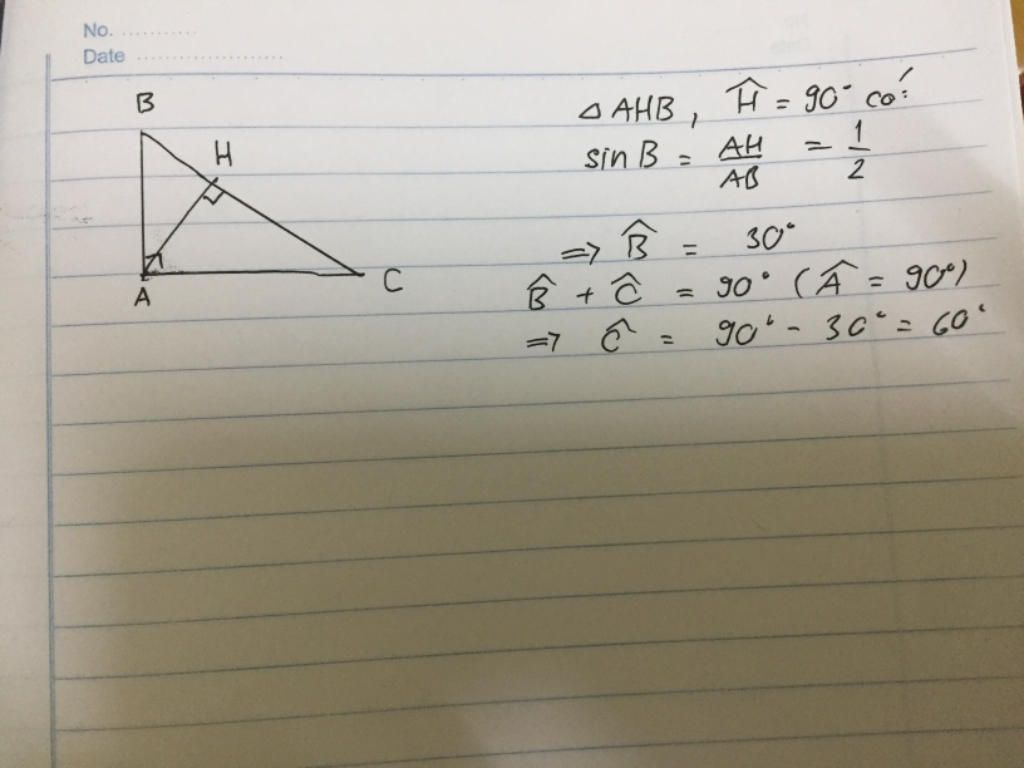 No. ............
Date ......................
B
H
A
C
△AHB, Ĥ = 90° có:
sin B = AH/AB = 1/2
=> B̂ = 30°
B̂ + Ĉ = 90° (Â = 90°)
=> Ĉ = 90° - 30° = 60°